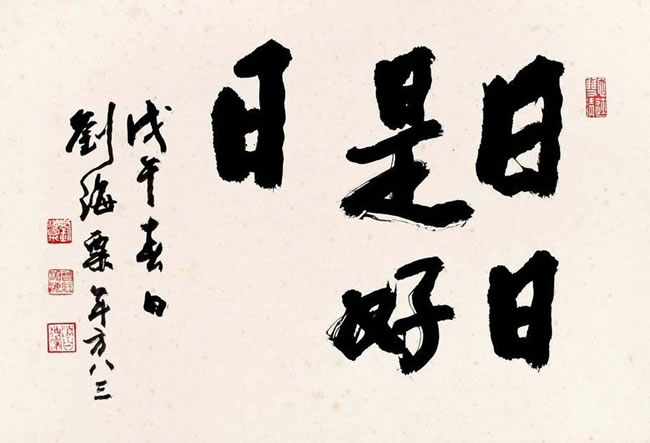 日日
是好
日
戊午春日
劉海粟年方八三